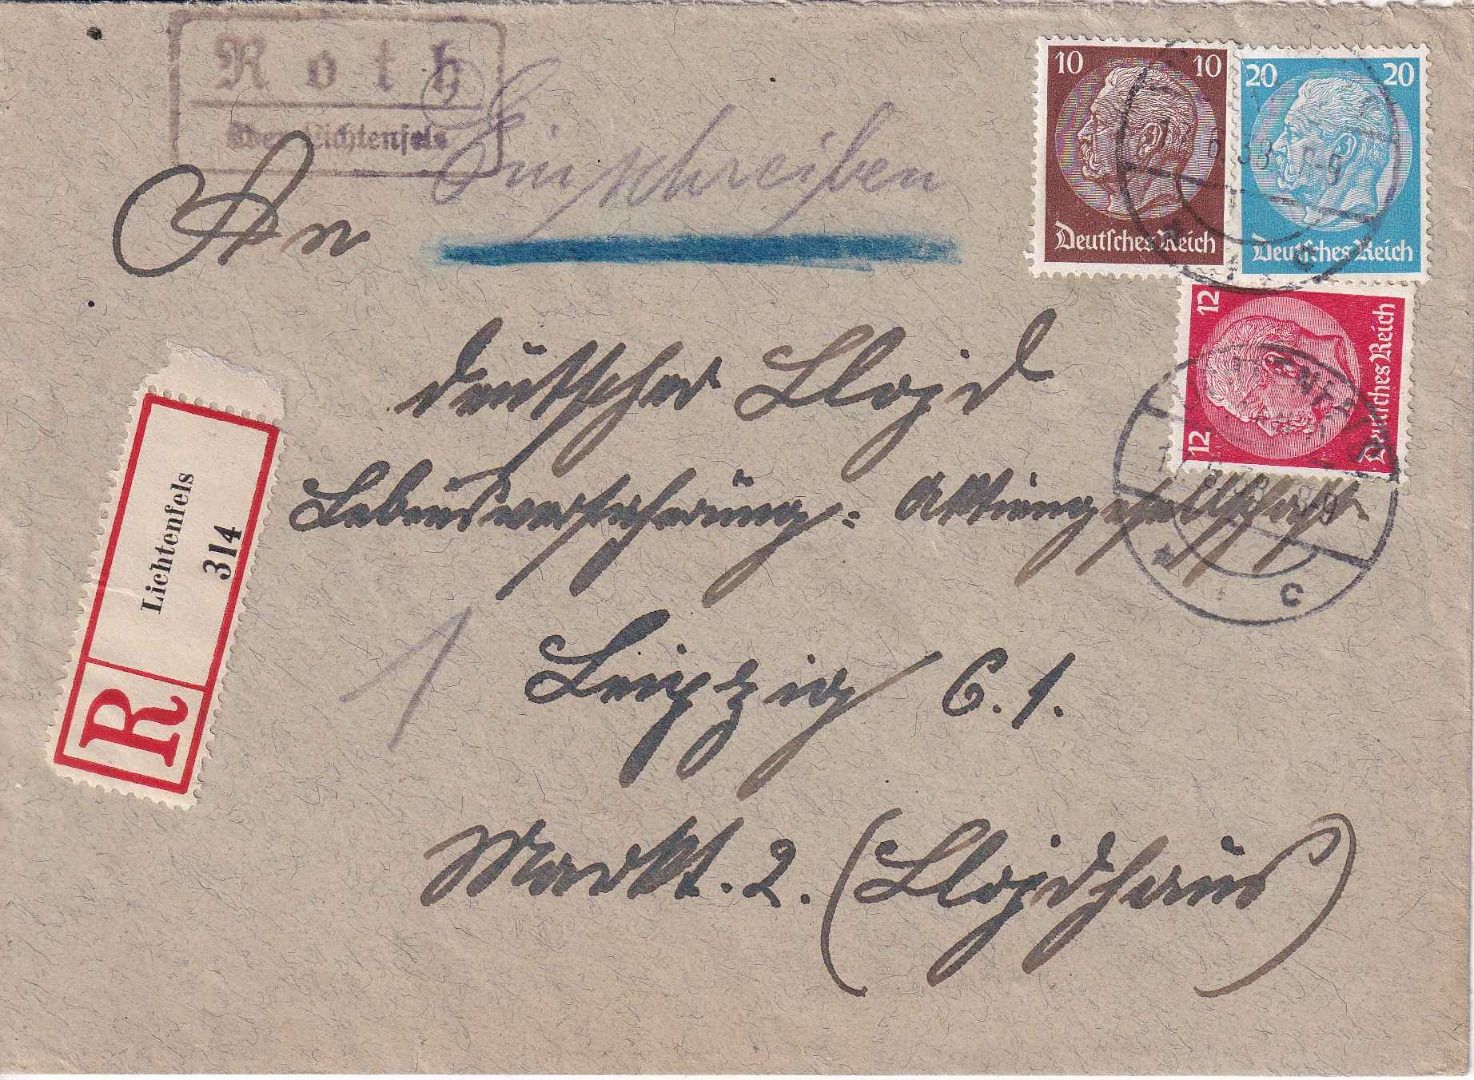 Roth
über Lichtenfels
Einschreiben
An
10 10
Deutsches Reich
20 20
Deutsches Reich
12 12
Deutsches Reich
deutscher Lloyd
Lebensversicherung: Aktiengesellschaft
Leipzig C. 1.
Markt. 2. (Lloydhaus)
Lichtenfels
314
R
1
c